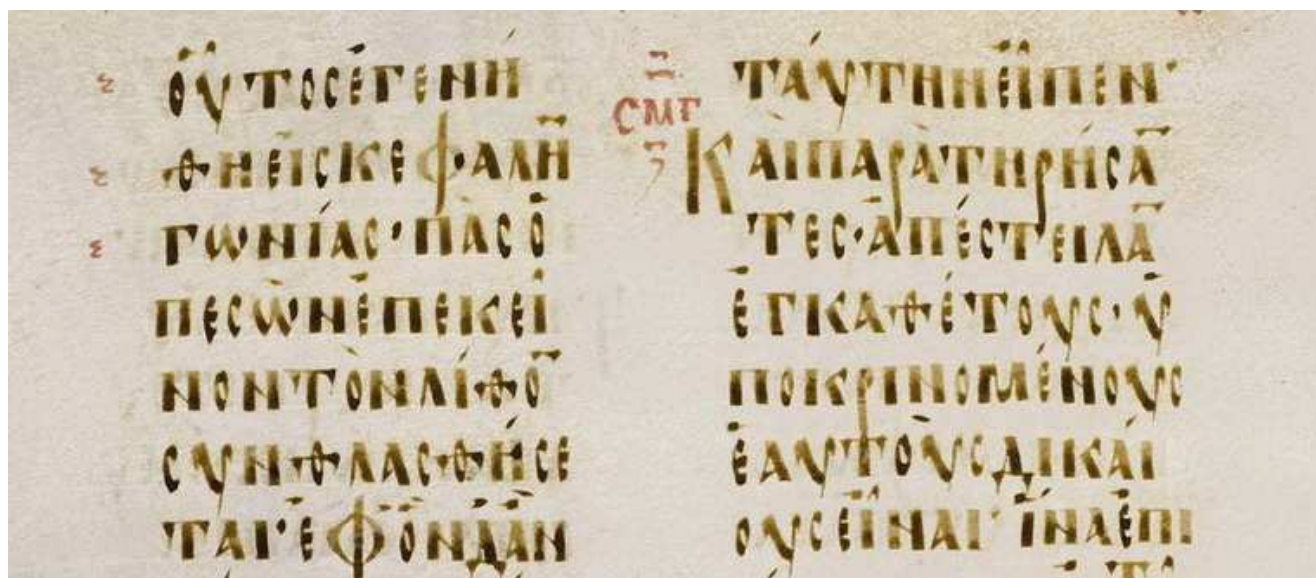 οὗτος ἐγενή
θη εἰς κεφαλὴ̅
γωνίας· πᾶς ὁ
πεσὼν ἐπ ἐκεῖ
νον τὸν λίθο̅
συνθλασθήσε
ται· ἐφ ὃν δ ἂν
σμγ
ταύτην εἶπεν·
Καὶ παρατηρήσα̅
τες· ἀπέστειλα̅
ἐγκαθέτους· ὑ
ποκρινομένους
ἑαυτοὺς δικαί
ους εἶναι· ἵνα ἐπι